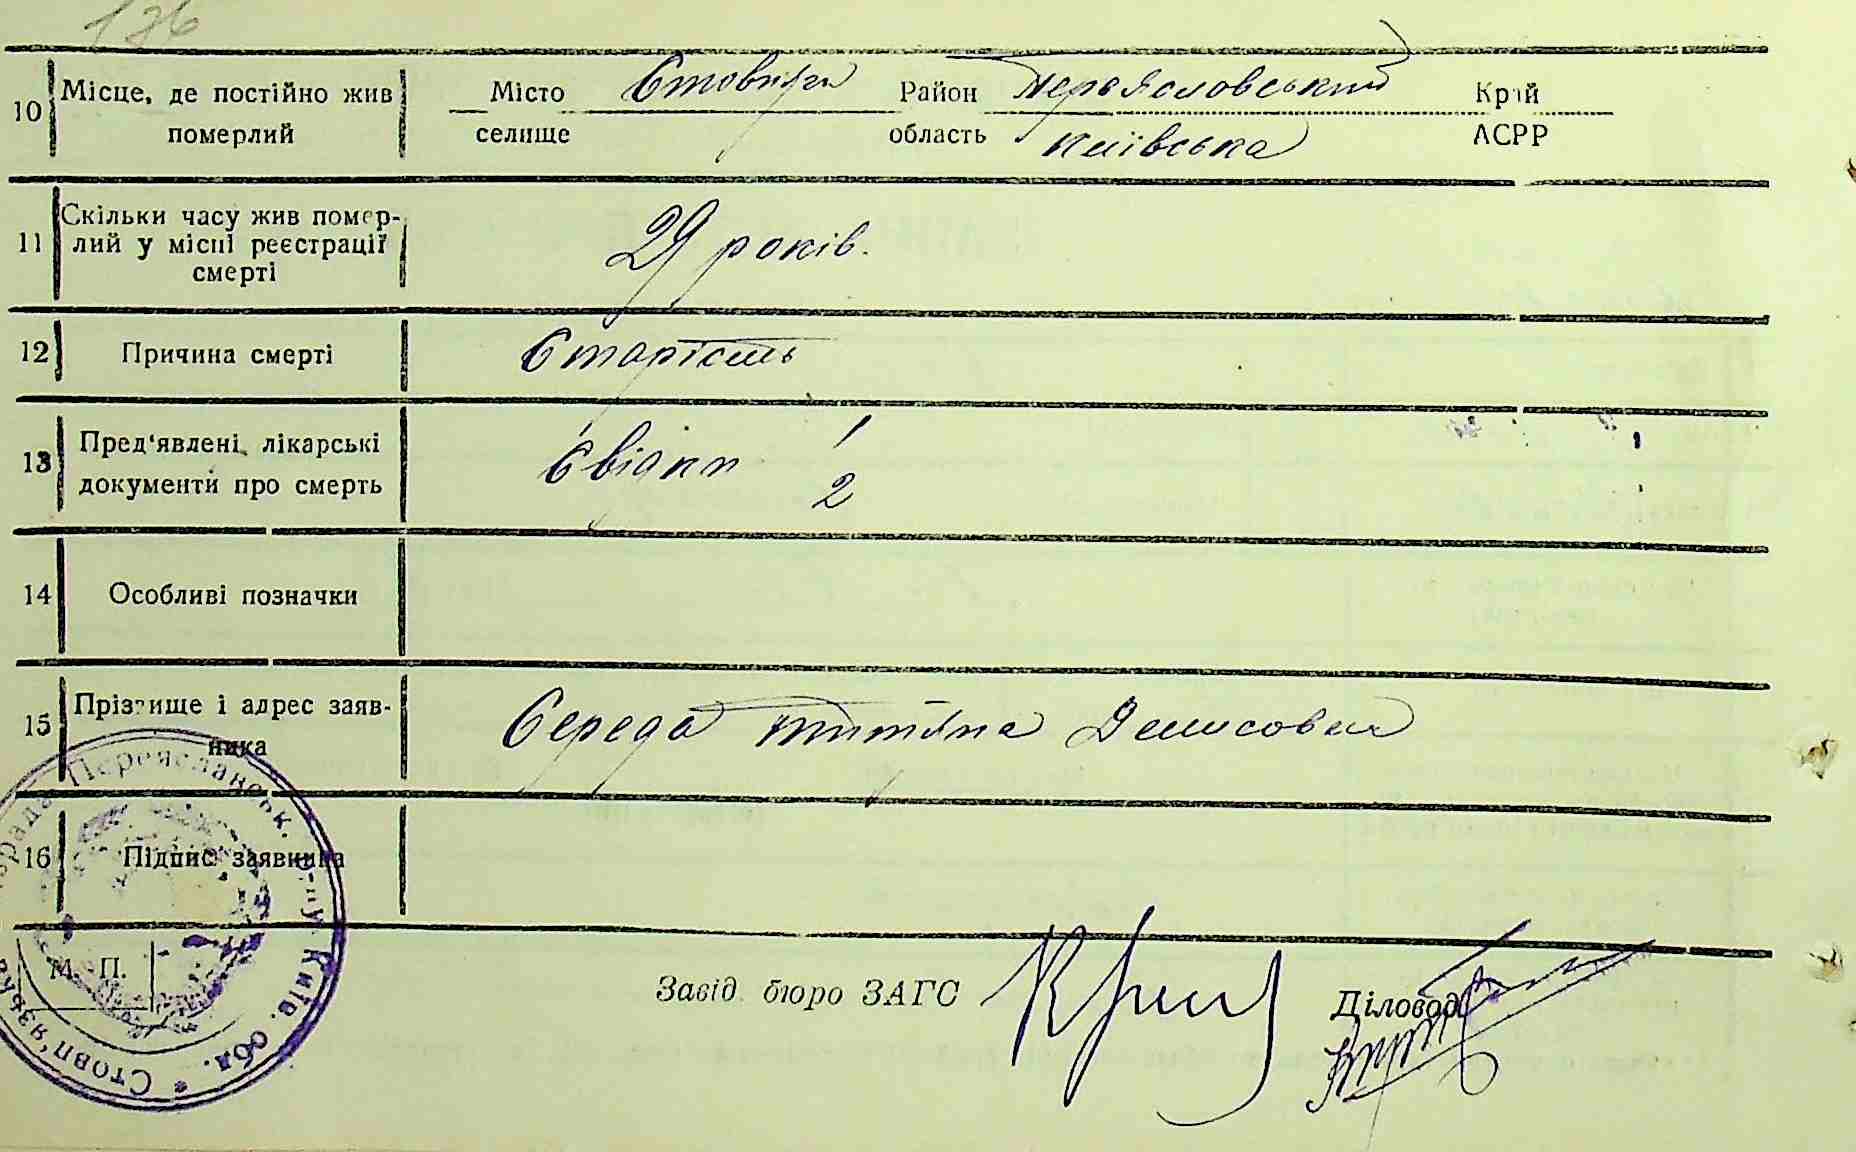 136
10 Місце, де постійно жив померлий Місто селище Стовпяги Район область Переясловський Київська Край АСРР
11 Скільки часу жив помер-
лий у місці реєстрації
смерті 29 років.
12 Причина смерті Старість
13 Пред'явлені лікарські
документи про смерть Свідки 1 2
14 Особливі позначки
15 Прізвище і адрес заяв-
ника Середа Титяна Денисовна
16 Підпис заявника
М. П.
Завід. бюро ЗАГС Діловод
Переяславськ. р-ну Київ. обл. * Стовп'язька